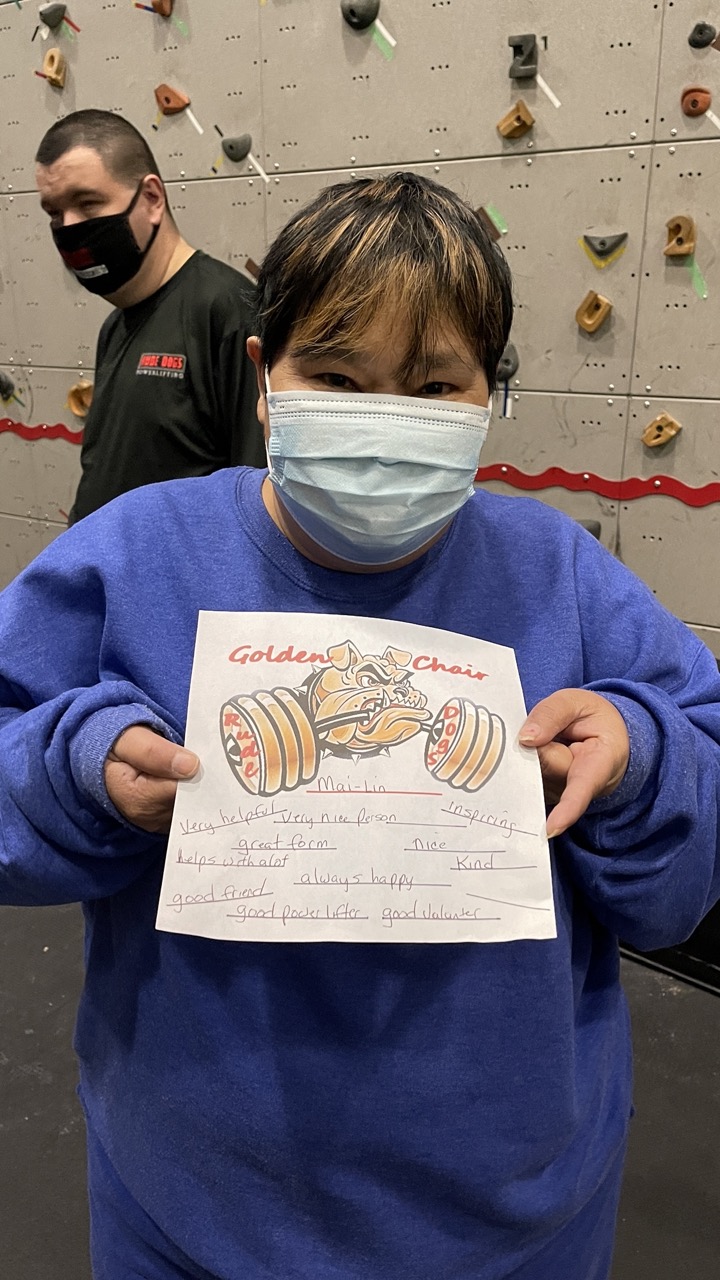 RUDE DOGS
POWERLIFTING
Golden Chair
Rude Dogs
Mai-Lin
Very helpful Very nice Person Inspiring
great form nice
helps with alot Kind
always happy
good friend
good power lifter good volunter